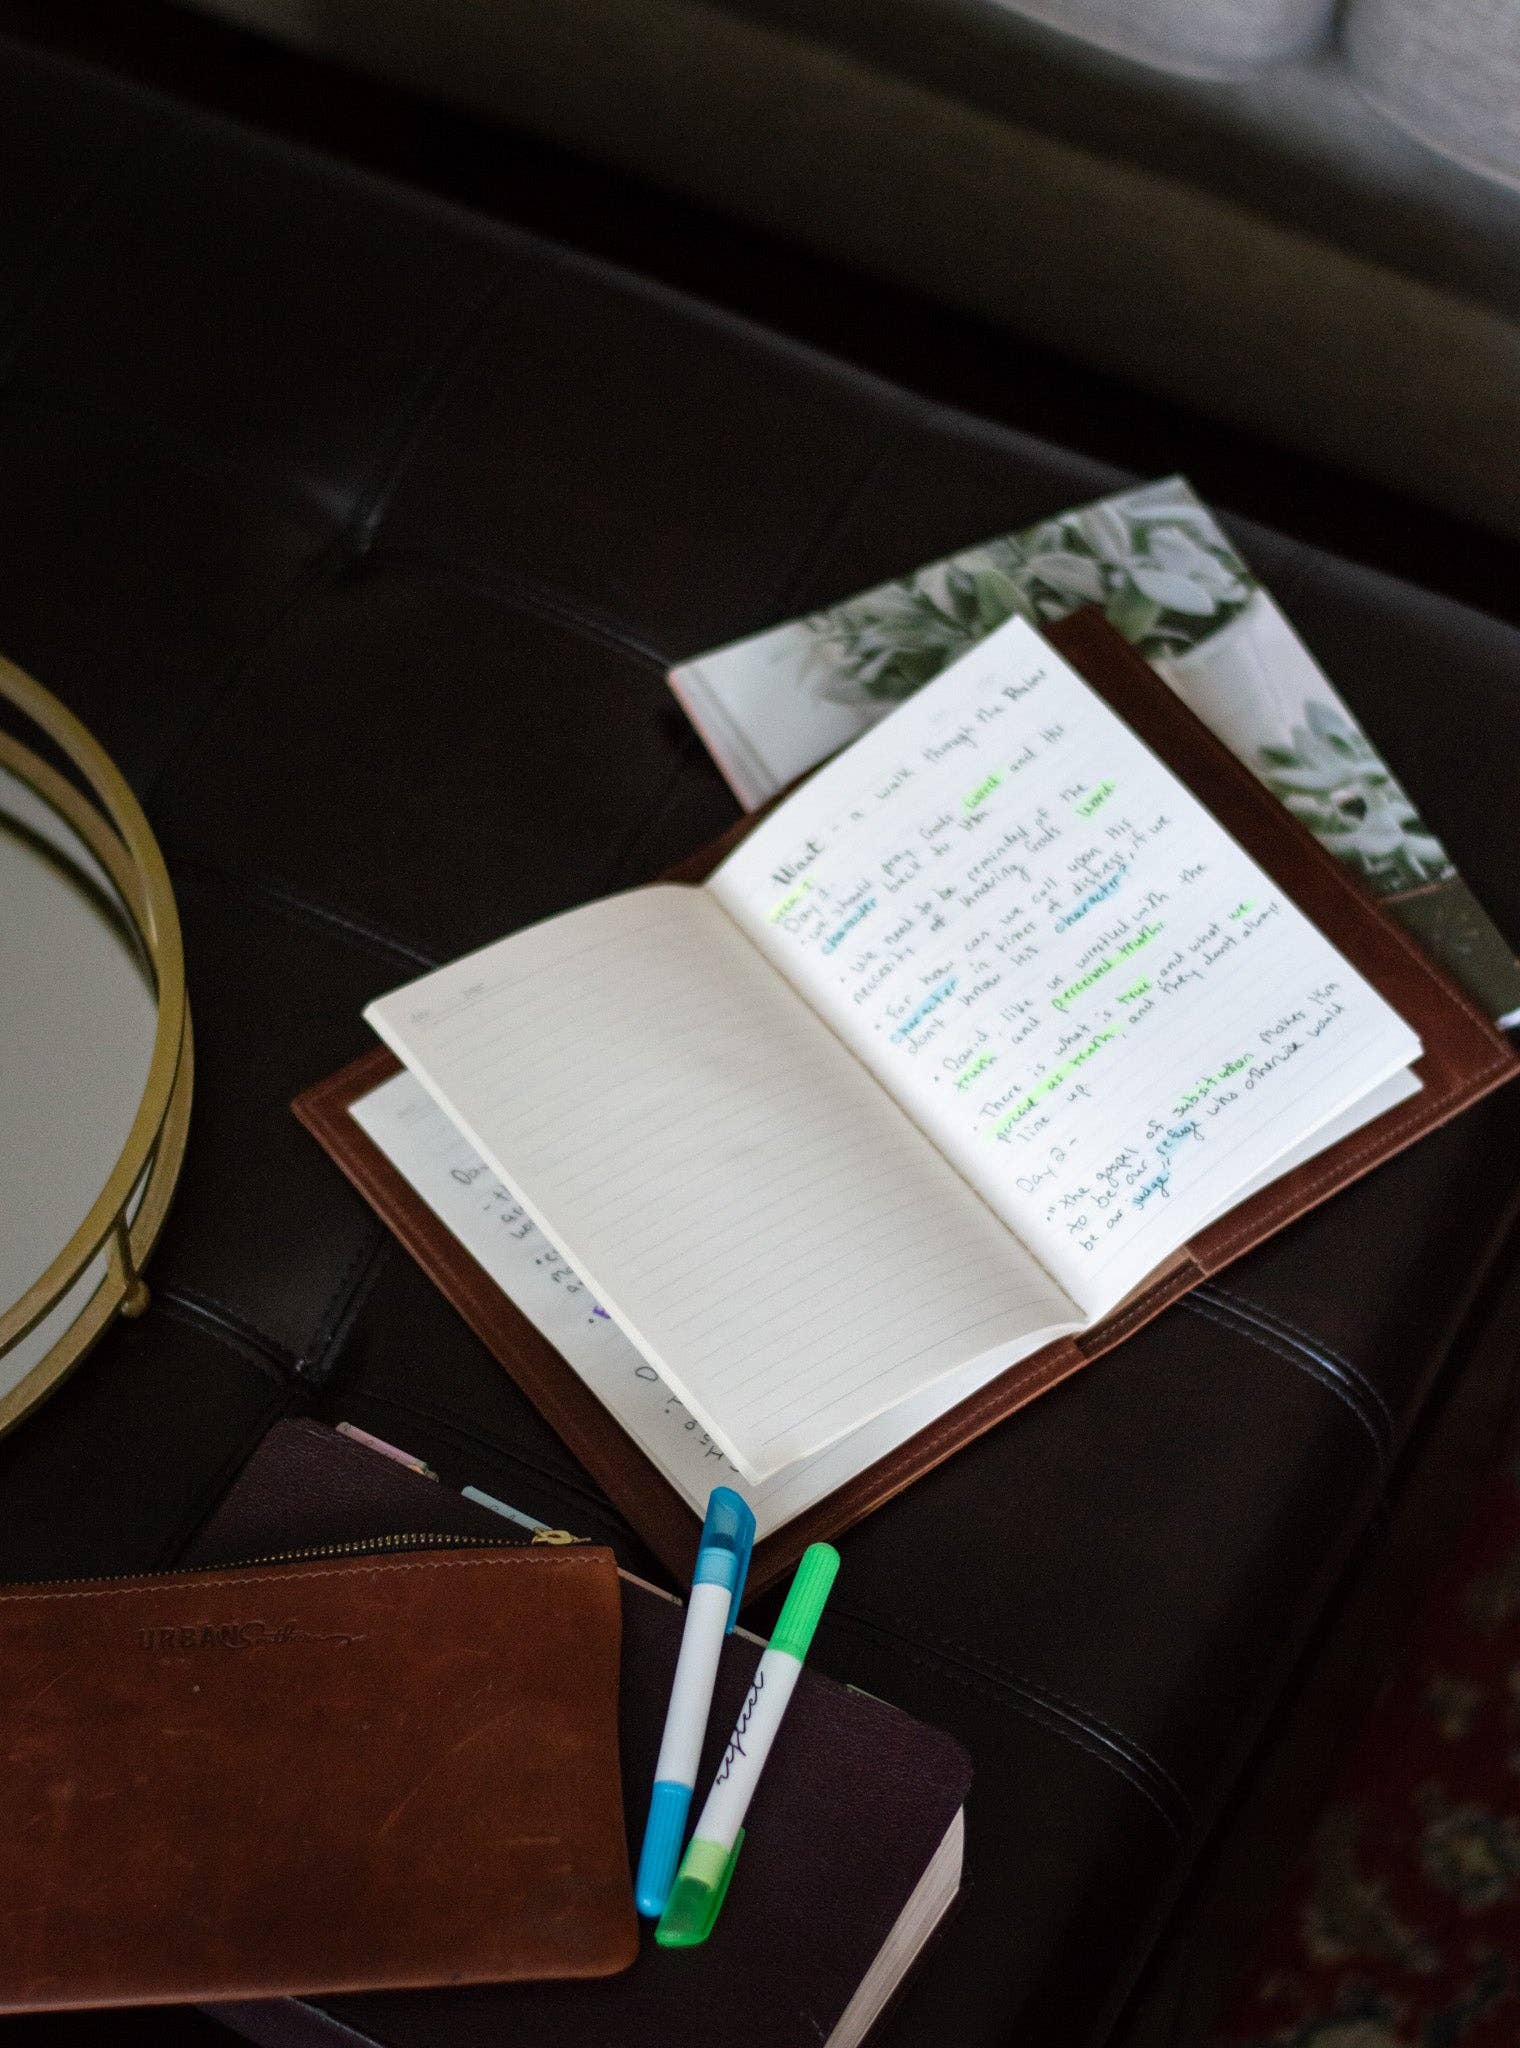 What - a walk through the Psalms
Day 1.
• we should pray God's word and His
character back to Him
• We need to be reminded of the
necessity of knowing God's word
• For how can we call upon His
character in times of distress, if we
don't know His character?
• David, like us wrestled with the
truth and perceived truth.
• There is what is true, and what we
perceive as truth, and they don't always
line up
Day 2 -
• "The gospel of subsitution makes Him
to be our refuge who otherwise would
be our judge."
URBAN Southern
reflect